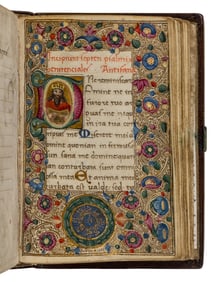 Incipiunt septem psalmi pe
nitenciales Antifana
Ne reminiscar
Domine ne in
furore tuo ar
guas me neq
in ira tua cor
ripias me Miserere mei
domine quoniam infirmus
sum sana me domine quoni
am conturbata sunt omnia
ossa mea Et anima mea
turbata est valde sed tu